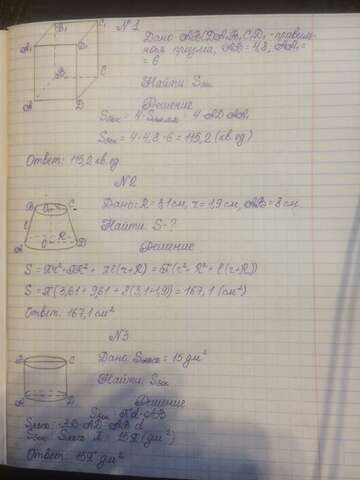 №1
Дано: ABCDA₁B₁C₁D₁ - правиль-
ная призма, AB = 4,8, AA₁ =
= 6
Найти: Sбок
Решение
Sбок = 4 · = 4 · AD · AA₁
Sбок = 4 · 4,8 · 6 = 115,2 (кв. ед)
Ответ: 115,2 кв. ед.
№2
Дано: R = 3,1 см, r = 1,9 см, AB = 8 см
Найти: S - ?
Решение
S = πr² + πR² + πl(r+R) = π(r² + R² + l(r+R))
S = π(3,61 + 9,61 + 8(3,1+1,9)) = 167,1 (см²)
Ответ: 167,1 см²
№3
Дано: S = 15 дм²
Найти: Sбок
Решение
Sбок = πd · AB
= AD · AB
Sбок = = 15π (дм²)
Ответ: 15π дм²